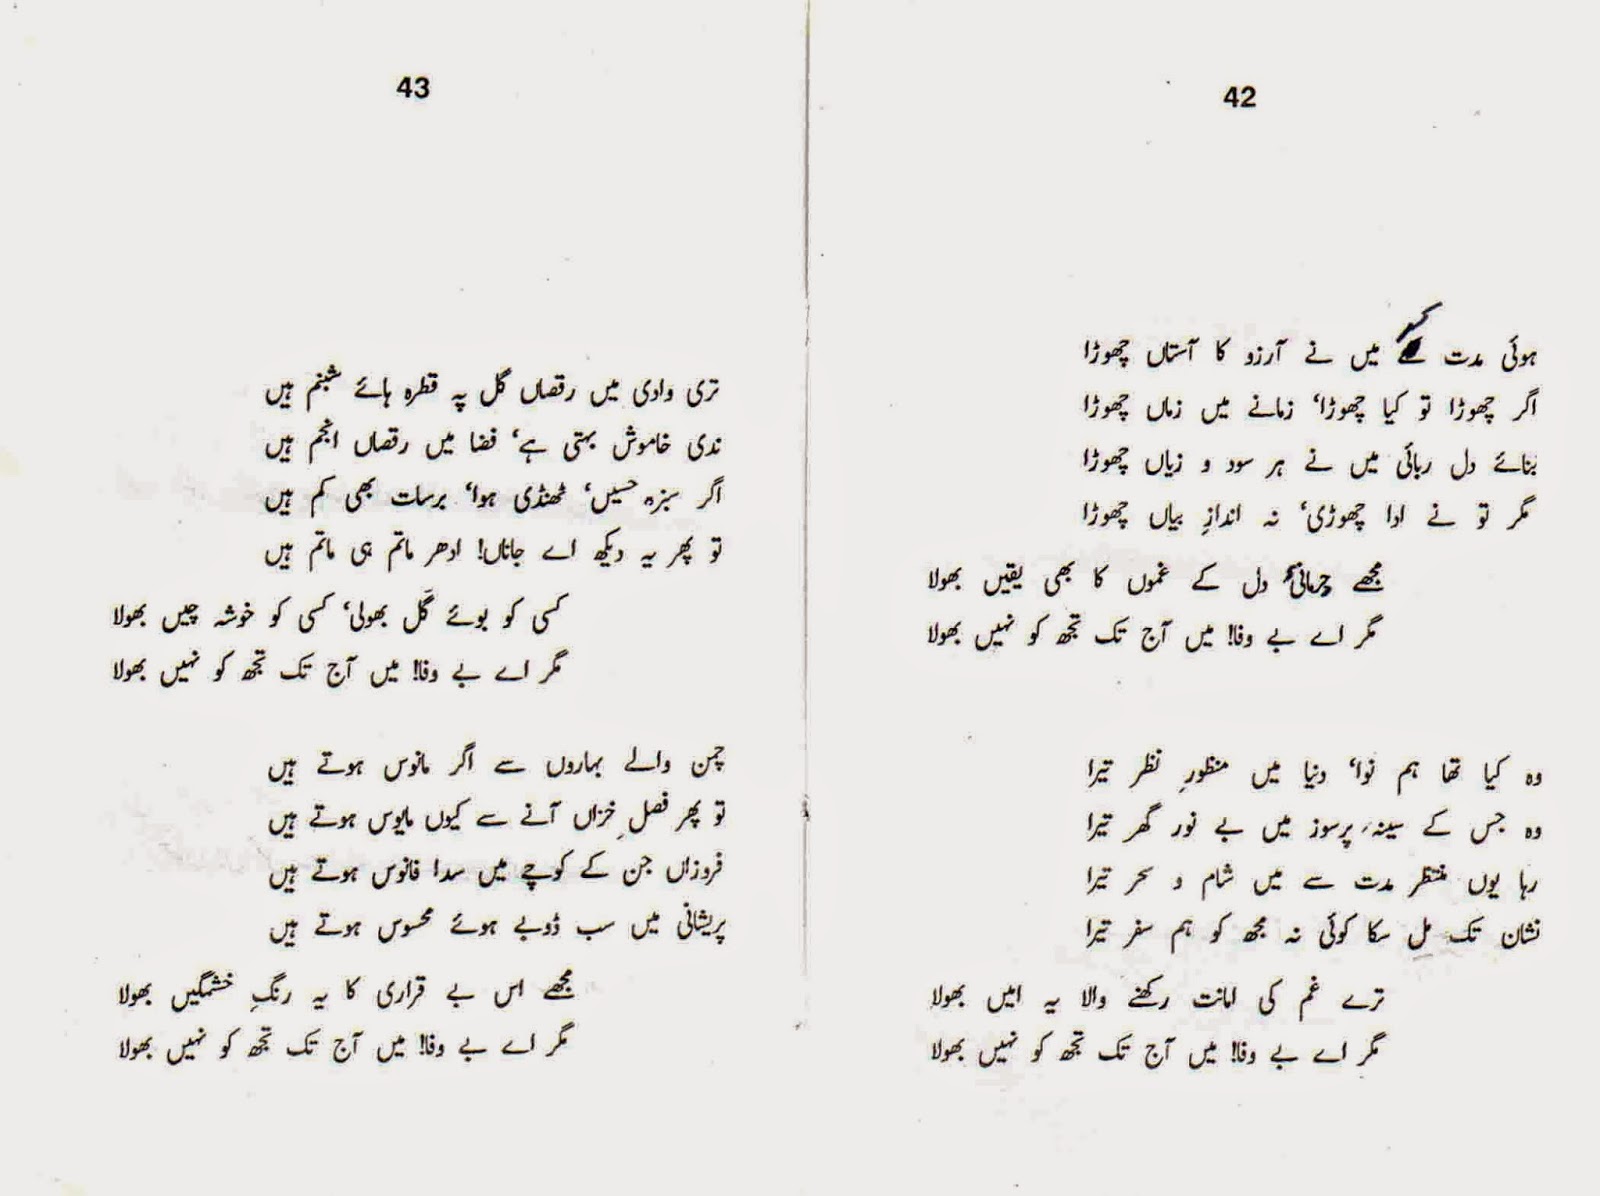 42
ہوئی مدت میں نے آرزو کا آستاں چھوڑا
اگر چھوڑا تو کیا چھوڑا، زمانے میں زماں چھوڑا
بنائے دل ربائی میں نے ہر سود و زیاں چھوڑا
مگر تو نے ادا چھوڑی، نہ اندازِ بیاں چھوڑا
مجھے دل کے غموں کا بھی یقیں بھولا
مگر اے بے وفا! میں آج تک تجھ کو نہیں بھولا
وہ کیا تھا ہم نوا، دنیا میں منظورِ نظر تیرا
وہ جس کے سینہء پرسوز میں بے نور گھر تیرا
رہا یوں منتظر مدت سے میں شام و سحر تیرا
نشان تک مل سکا کوئی نہ مجھ کو ہم سفر تیرا
ترے غم کی امانت رکھنے والا یہ امیں بھولا
مگر اے بے وفا! میں آج تک تجھ کو نہیں بھولا
43
تری وادی میں رقصاں گل پہ قطرہ ہائے شبنم ہیں
ندی خاموش بہتی ہے، فضا میں رقصاں انجم ہیں
اگر سبزہ حسیں، ٹھنڈی ہوا، برسات بھی کم ہیں
تو پھر یہ دیکھ اے جاناں! ادھر ماتم ہی ماتم ہیں
کسی کو بوئے گل بھولی، کسی کو خوشہ چیں بھولا
مگر اے بے وفا! میں آج تک تجھ کو نہیں بھولا
چمن والے بہاروں سے اگر مانوس ہوتے ہیں
تو پھر فصلِ خزاں آنے سے کیوں مایوس ہوتے ہیں
فروزاں جن کے کوچے میں سدا فانوس ہوتے ہیں
پریشانی میں سب ڈوبے ہوئے محسوس ہوتے ہیں
مجھے اس بے قراری کا یہ رنگِ خشمگیں بھولا
مگر اے بے وفا! میں آج تک تجھ کو نہیں بھولا